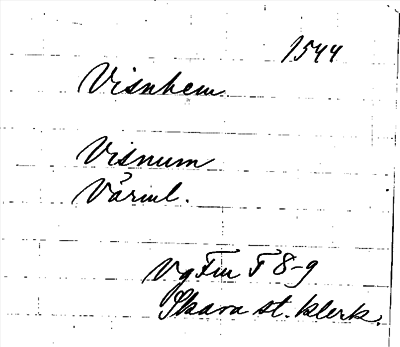 1544
Visnhem
Visnum
Värml.
VgFmT 8-9
Skara st. klerk.